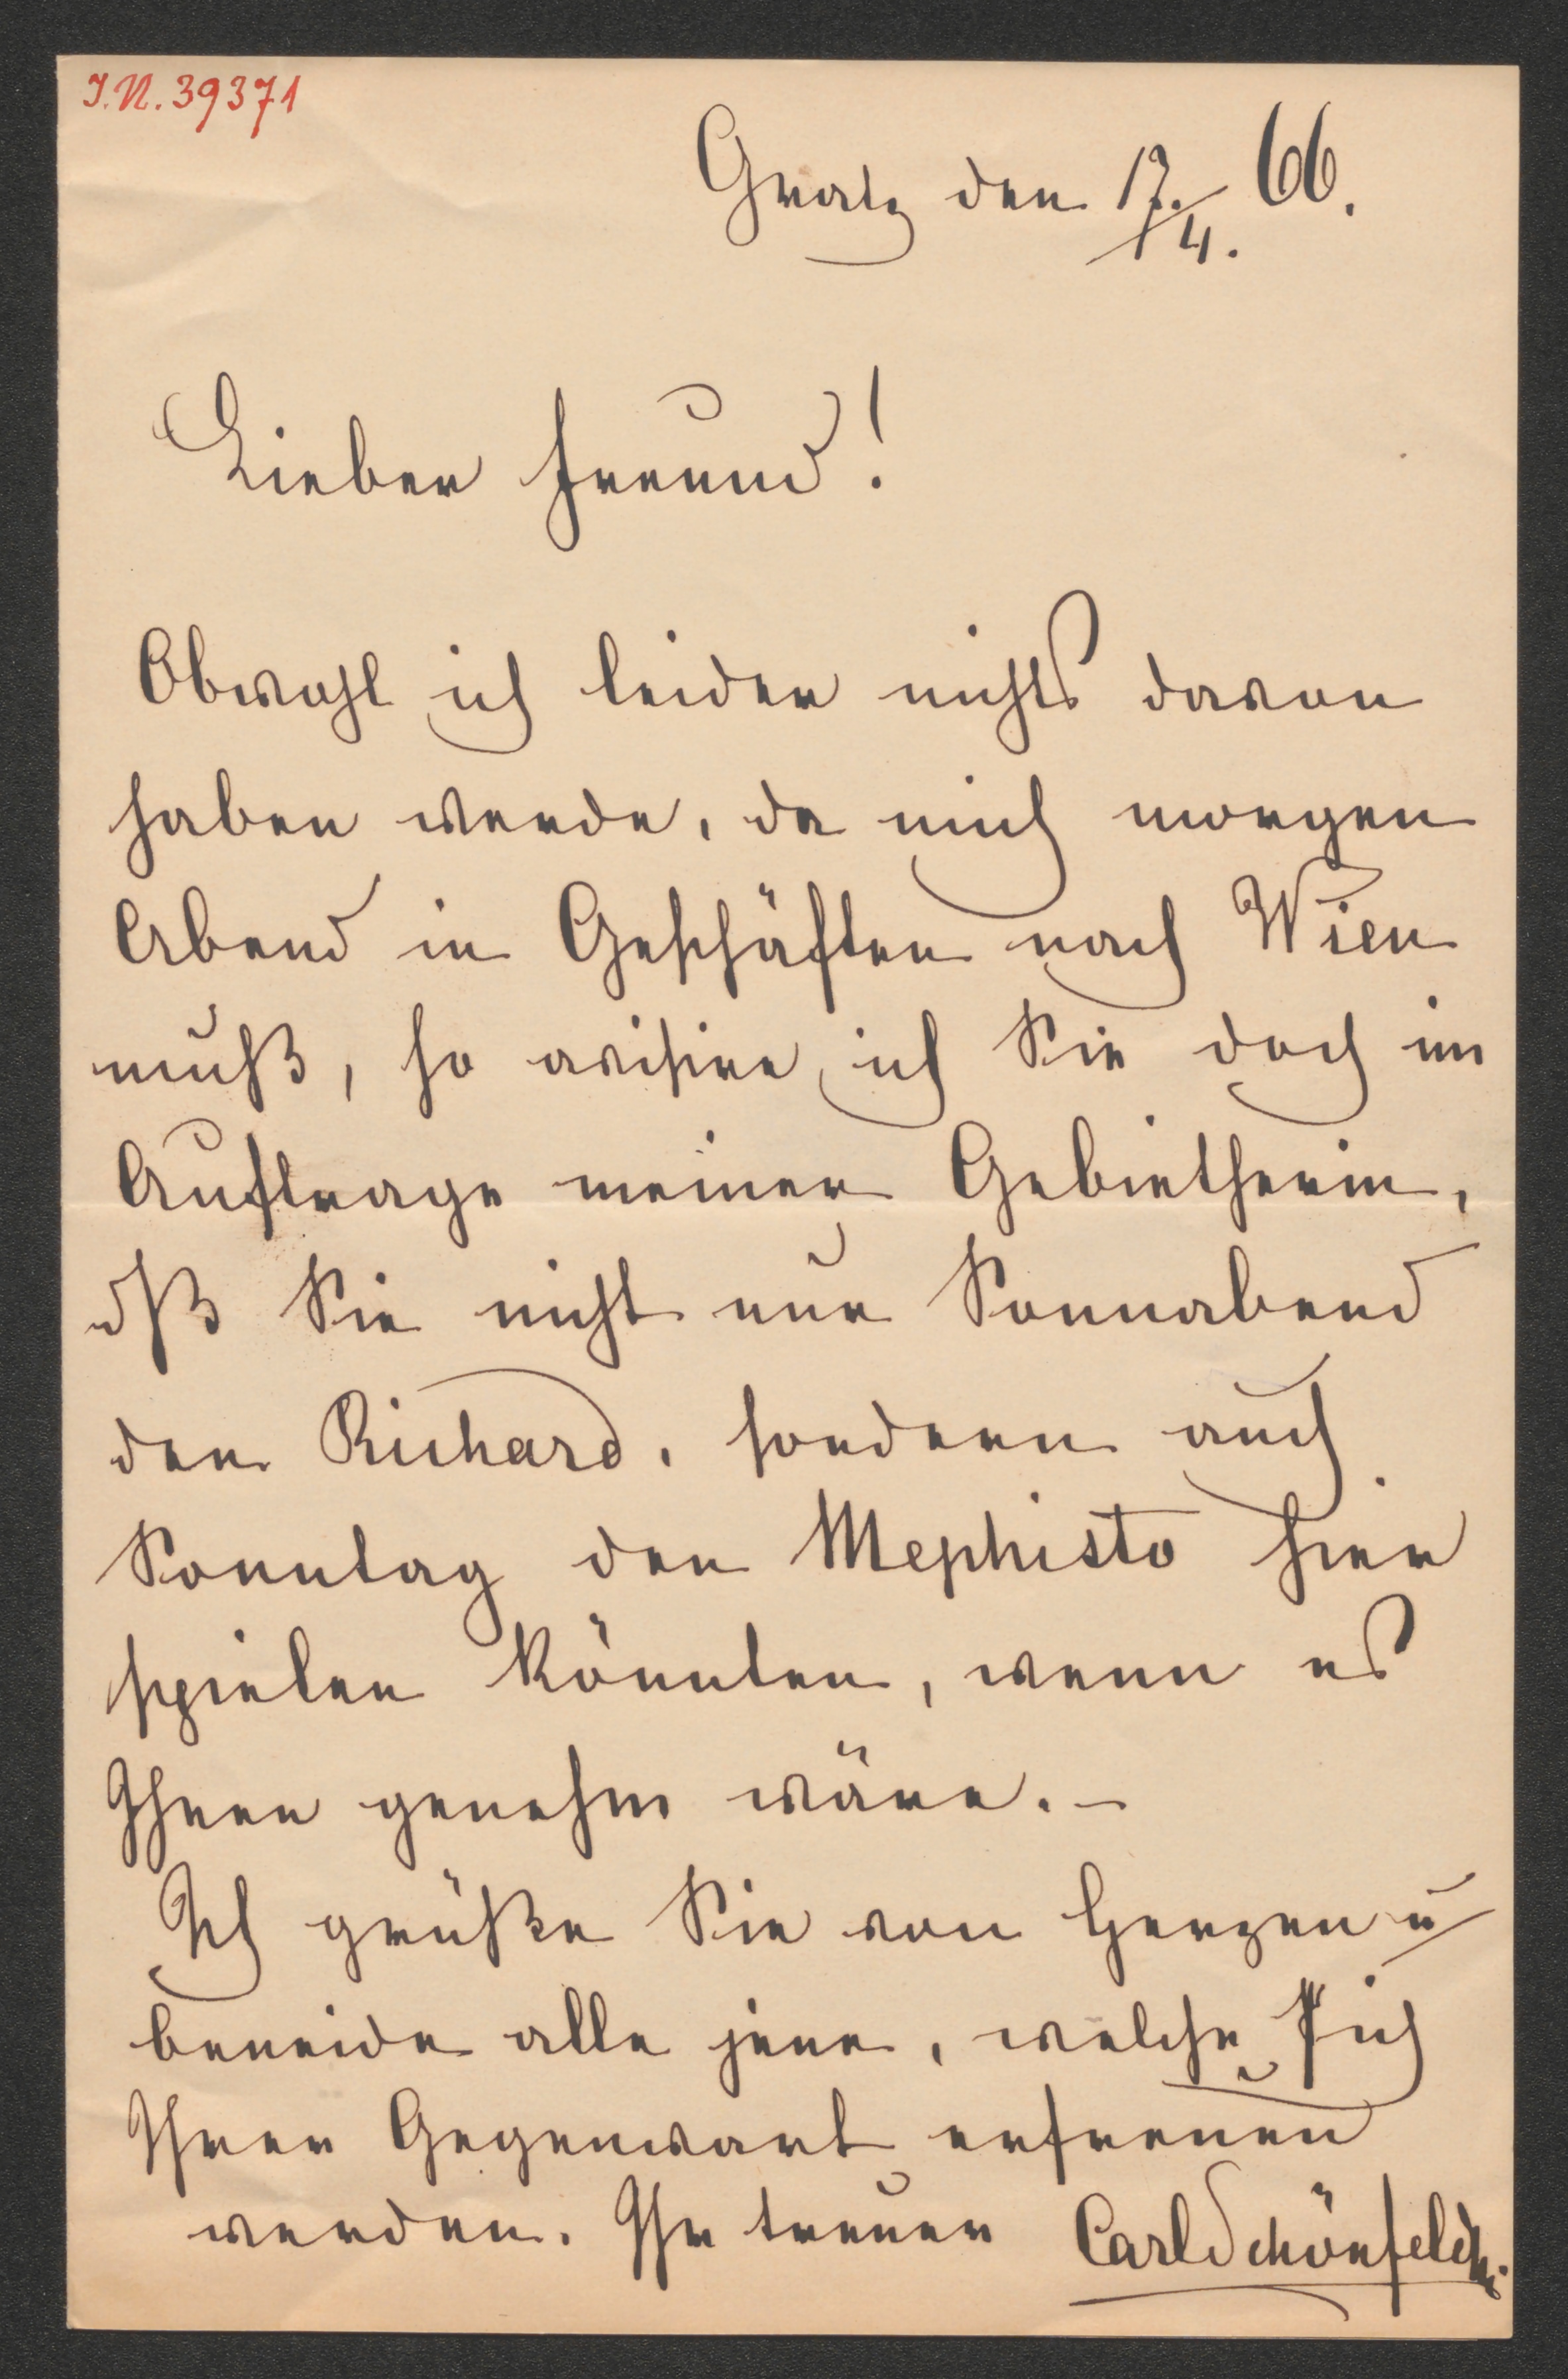 I.N. 39371
Gratz den 17./4. 66.
Lieber Freund!
Obwohl ich leider nichts davon
haben werde, da mich morgen
Abend in Geschäften nach Wien
muß, so avisire ich Sie doch im
Auftrage meiner Gebietherin,
dß Sie nicht nur Sonnabend
den Richard, sondern auch
Sonntag den Mephisto hier
spielen könnten, wenn es
Ihnen genehm wäre. –
Ich grüße Sie von Herzen u
beneide alle jene, welche sich
Ihrer Gegenwart erfreuen
werden. Ihr treuer Carl Schönfeld